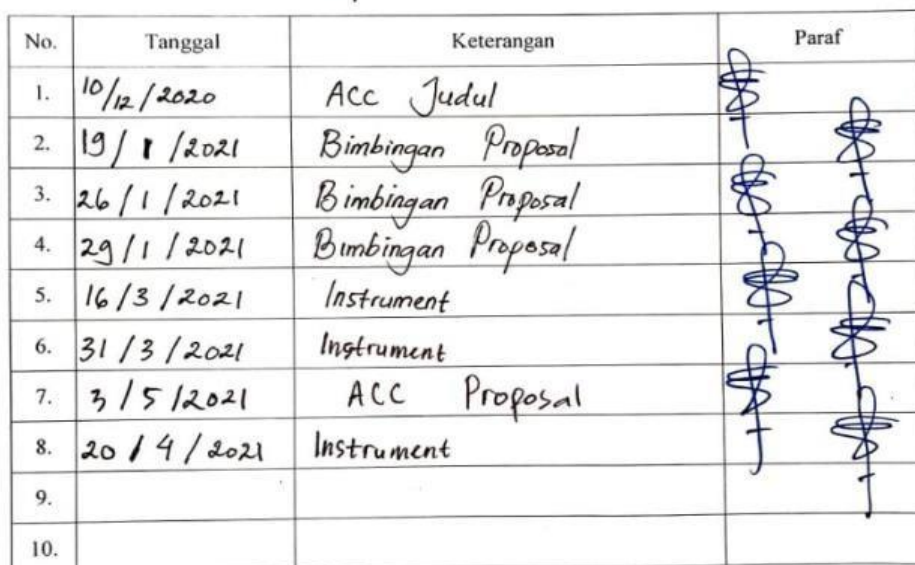 No. Tanggal Keterangan Paraf
1. 10/12/2020 ACC Judul
2. 19/1/2021 Bimbingan Proposal
3. 26/1/2021 Bimbingan Proposal
4. 29/1/2021 Bimbingan Proposal
5. 16/3/2021 Instrument
6. 31/3/2021 Instrument
7. 3/5/2021 ACC Proposal
8. 20/4/2021 Instrument
9.
10.